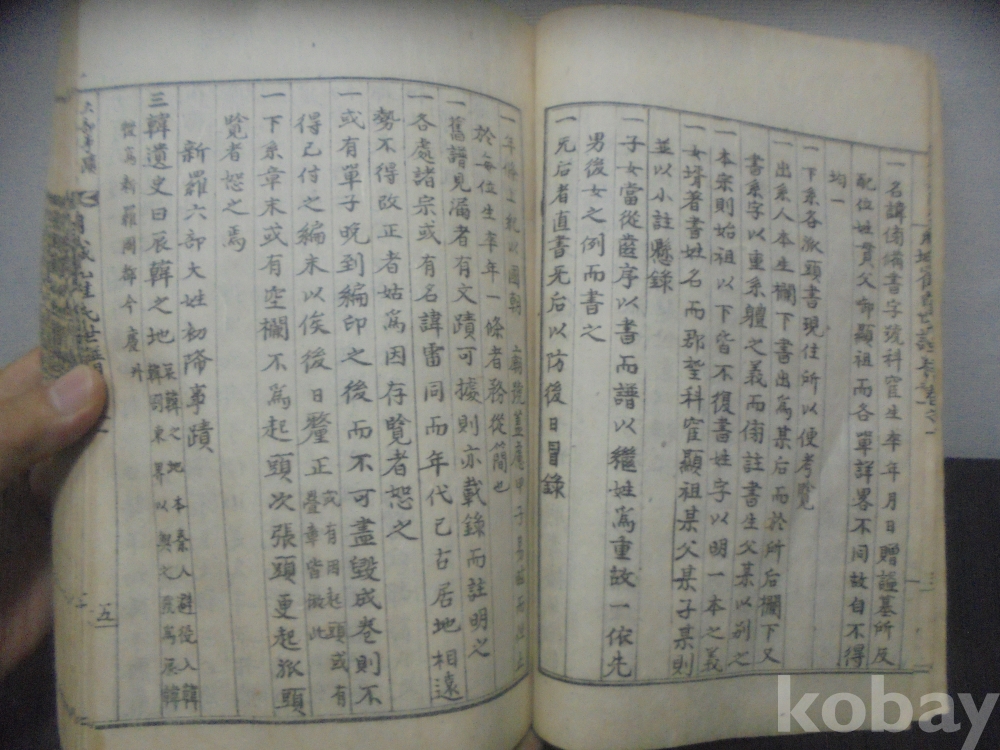 一名諱傍備書字號科宦生卒年月日贈諡墓所及
配位姓貫父命顯祖而各單詳畧不同故自不得
均一
一下系各派頭書現住所以便考覽
一出系人本生欄下書出爲某后而於所后欄下又
書系字以重系體之義而傍註書生父某以別之
一本宗則始祖以下皆不復書姓字以明一本之義
一女壻著書姓名而郡望科宦顯祖某父某子某則
並以小註懸錄
一子女當從齒序以書而譜以繼姓爲重故一依先
男後女之例而書之
一无后者直書无后以防後日冒錄
一年條上紀以國朝
於每位生卒年一條者務從簡也
一舊譜見漏者有文蹟可據則亦載錄而註明之
一各處諸宗或有名諱雷同而年代已古居地相遠
勢不得改正者姑爲因存覽者恕之
一或有單子晩到編印之後而不可盡毀成卷則不
得已付之編末以俟後日釐正 或有因起頭或有疊章皆倣此
一下系章末或有空欄不爲起頭次張頭更起派頭
覽者恕之焉
新羅六部大姓初降事蹟
三韓遺史曰辰韓之地 辰韓之地本秦人避役入韓韓司東界以與之
爲新羅國都今慶州
月城崔氏世譜
五
kobay